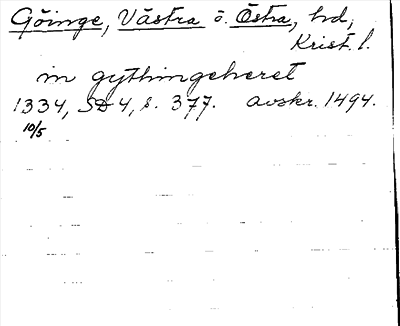 Göinge, Västra o. Östra, hd,
Krist. l.
in gythingeheret
1334, SD 4, s. 377. avskr. 1494.
10/5